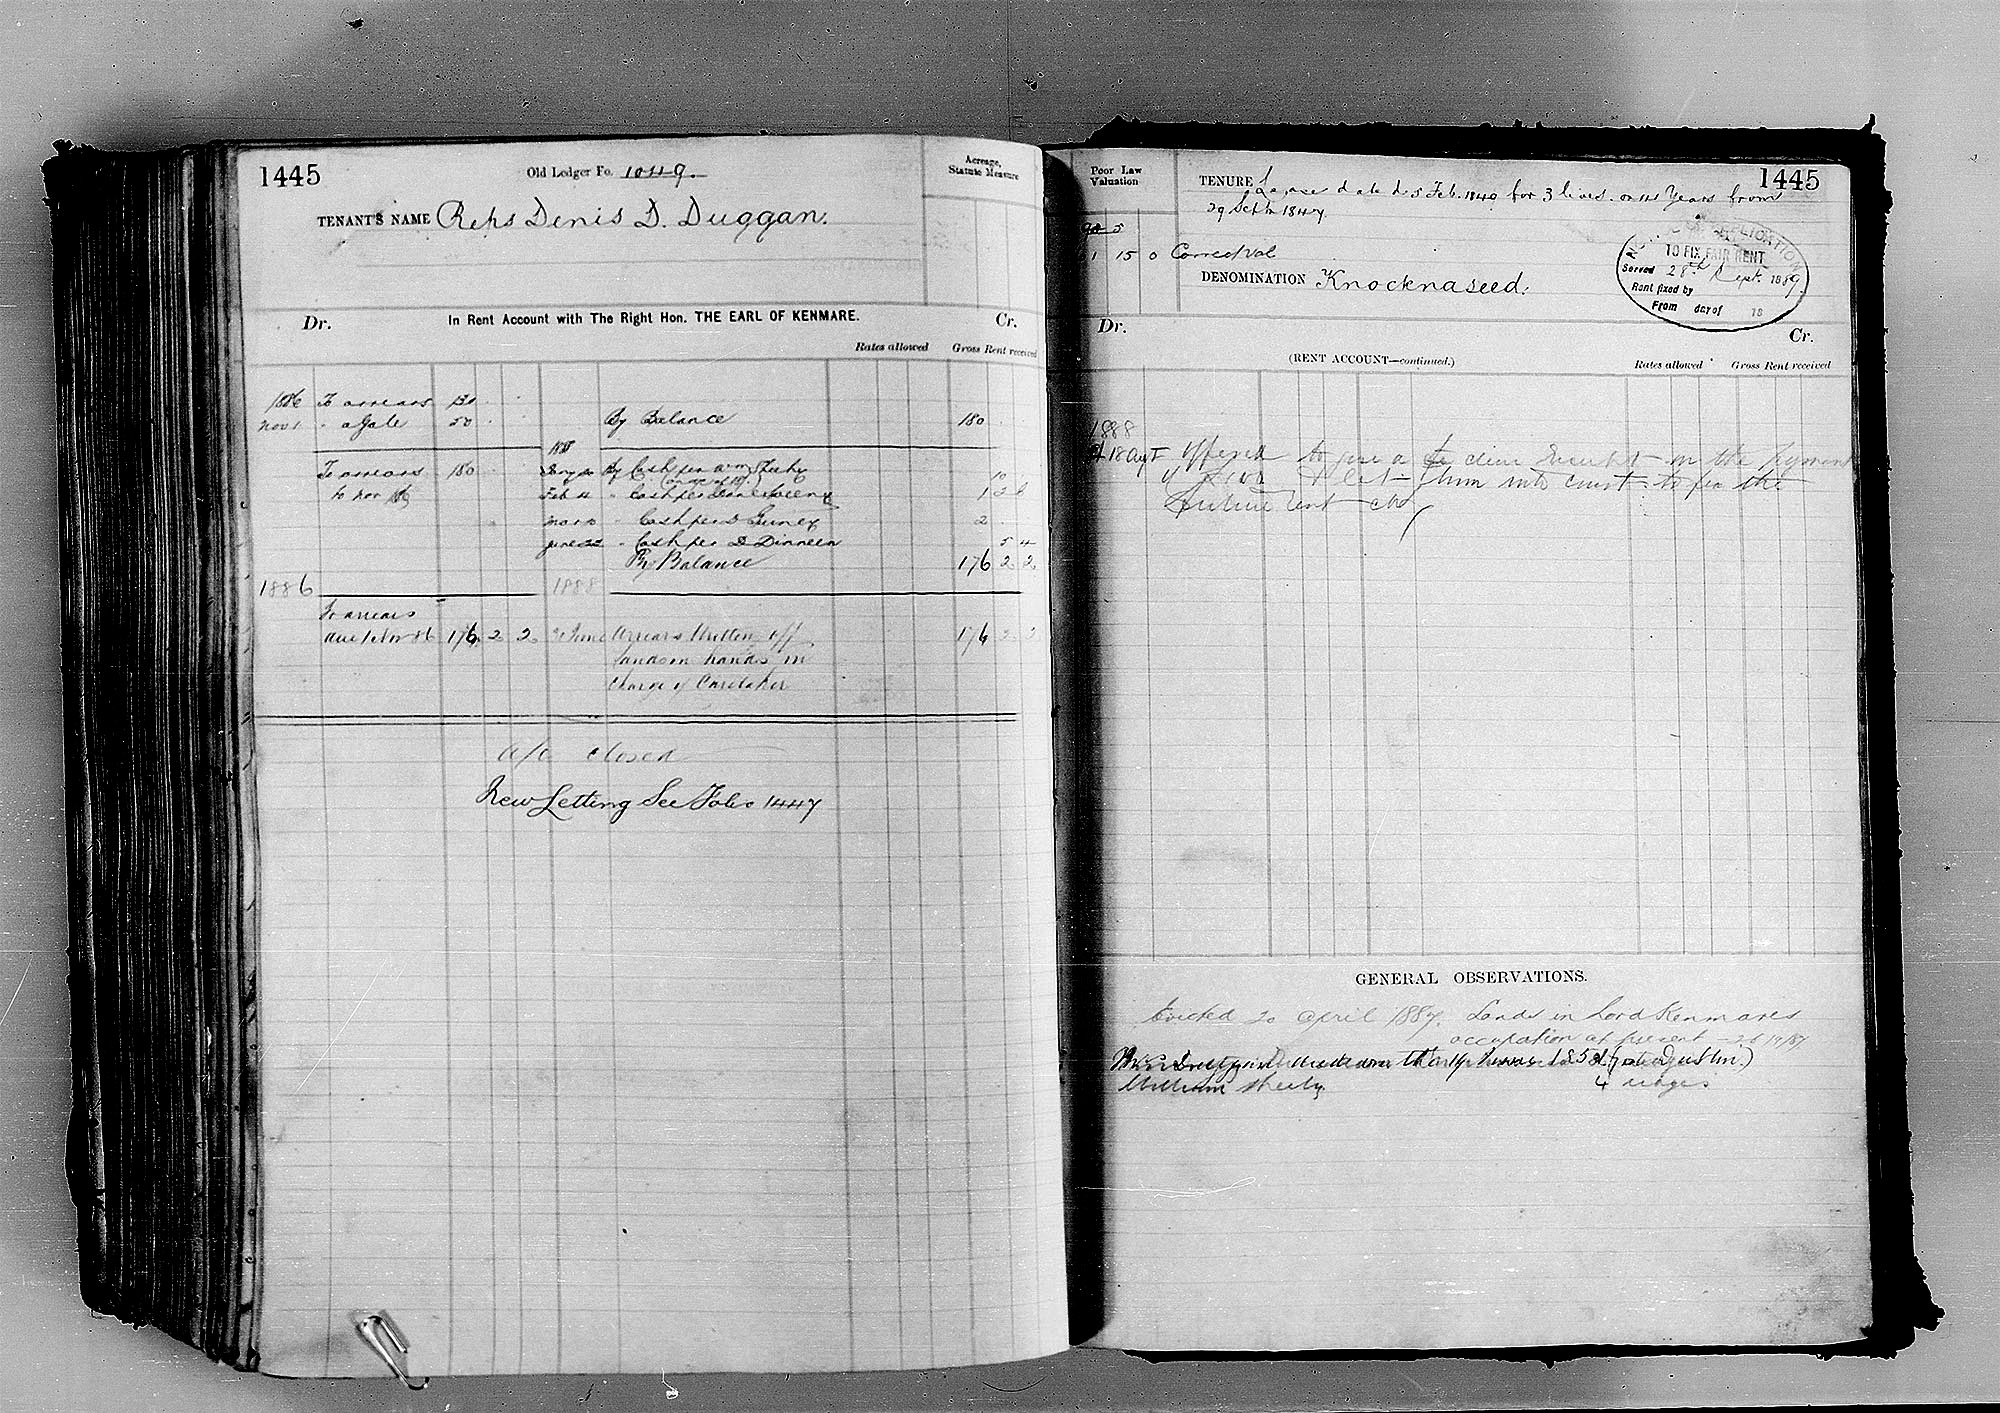 1445
Old Ledger Fo. 1049
TENANT'S NAME Reps Denis D. Duggan.
Acreage,
Statute Measure
Dr. In Rent Account with The Right Hon. THE EARL OF KENMARE. Cr.
Rates allowed Gross Rent received
1886 To arrears 130
Nov 1 " a Gale 50 By Balance 180
To arrears 180 By Cash per Wm Sheehy 10
to Nov 86 Feb 4 " Cash per
" Cash per D 2
June 22 " Cash per D Dinneen 5 4
By Balance 176 2 2
1886 1888
To arrears
due 1 Nov 86 176 2 2 June Arrears Written off 176 2 2
Lands on hands in
Charge of Caretaker
a/c closed
New Letting See Folio 1447
Poor Law
Valuation
TENURE Lease dated 5 Feb. 1849 for 3 lives or 41 Years from
29 Septr 1847
1445
1 15 0 Correct Val
DENOMINATION Knocknaseed.
TO FIX FAIR RENT
Served 28th Sept. 1889
Rent fixed by
From day of 18
Dr. Cr.
(RENT ACCOUNT—continued.)
Rates allowed Gross Rent received
1888
18 Aug Offered to give a clear receipt on the payment
of £100 & let them into court to fix the
future rent
GENERAL OBSERVATIONS.
Evicted 20 April 1887. Lands in Lord Kenmares
occupation at present
William Sheehy